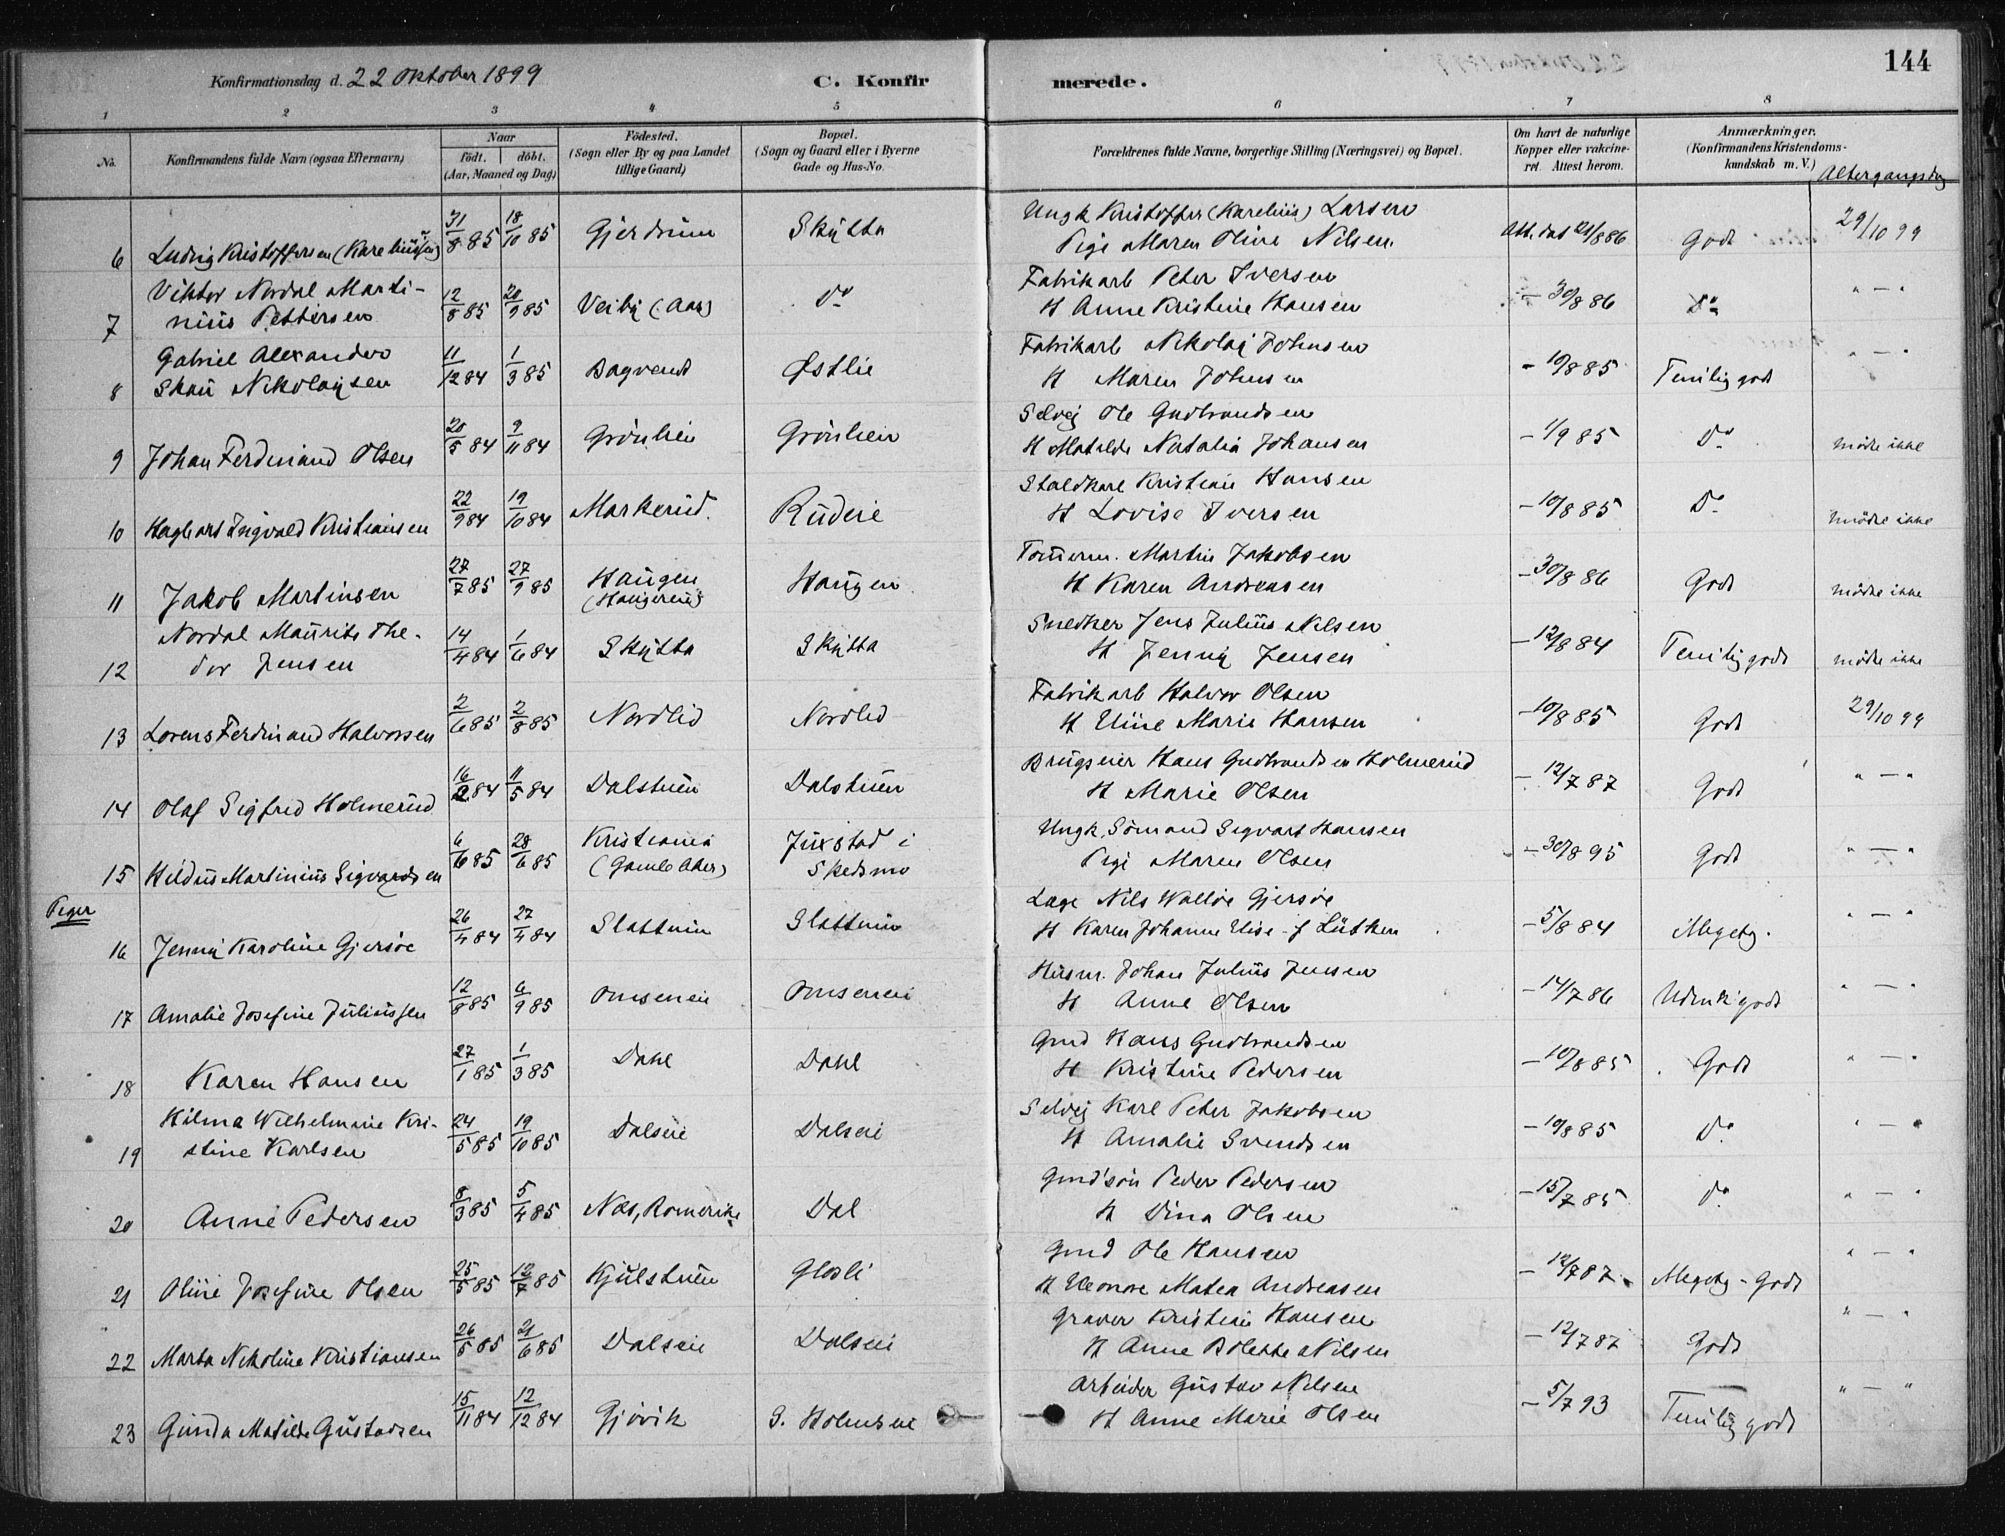 144
Konfirmationsdag d. 22 Oktober 1899 C. Konfirmerede.
1 2 3 4 5 6 7 8
No. Konfirmandens fulde Navn (ogsaa Efternavn) Naar födt. döbt. (Aar, Maaned og Dag) Födested. (Sogn eller By og paa Landet tillige Gaard) Bopæl. (Sogn og Gaard eller i Byerne Gade og Hus-No. Forældrenes fulde Navne, borgerlige Stilling (Næringsvei) og Bopæl. Om havt de naturlige Kopper eller vakcineret. Attest herom. Anmærkninger. (Konfirmandens Kristendomskundskab m. V.) Altergangsdag
Ungk Kristoffer (Karelius) Larsen
6 Ludvig Kristoffersen (Kareliussen) 31/8 85 18/10 85 Gjerdrum Skytta Pige Maren Oline Nilsen. Att. dat 21/8 86 Godt 29/10 99
Viktor Nordal Marti- Fabrikarb Peter Iversen
7 nius Pettersen 12/8 85 20/9 85 Veiby (Aas) Do H Anne Kristine Hansen - 30/8 86 Do " - "
Gabriel Alexander Fabrikarb Nikolai Johnsen
8 Skau Nikolaysen 11/12 84 1/3 85 Bagvend Østlie H Maren Johnsen - 10/8 85 Temlig godt " - "
Selvej Ole Gudbrandsen
9 Johan Ferdinand Olsen 20/5 84 9/11 84 Grönlien Grönlien H Matilde Natalia Johansen - 1/9 85 Do mödte ikke
Staldkarl Kristian Hansen
10 Hagbart Ingvald Kristiansen 22/9 84 19/10 84 Markerud Rudeie H Lovise Iversen - 10/8 85 Do mödte ikke
Tömerm. Martin Jakobsen
11 Jakob Martinsen 27/7 85 27/9 85 Haugen (Haugerud) Haugen H Karen Andreasen - 30/8 86 Godt mödte ikke
Nordal Maurits The- Snedker Jens Julius Nilsen
12 dor Jensen 14/4 84 1/6 84 Skytta Skytta H Jenny Jensen - 12/8 84 Temlig godt mödte ikke
Fabrikarb Halvor Olsen
13 Lorens Ferdinand Halvorsen 2/6 85 2/8 85 Nordlid Nordlid H Eline Marie Hansen - 10/8 85 Godt 29/10 99
Brugseier Hans Gudbrandsen Holmerud
14 Olaf Sigfred Holmerud 16/2 84 11/5 84 Dalstuen Dalstuen H Marie Olsen - 12/7 87 Godt " - "
Ungk. Sömand Sigvart Hansen
15 Hildus Martinius Sigvardsen 6/6 85 28/6 85 Kristiania (Gamle Aker) Juxstad i Skedsmo Pige Maren Olsen - 30/8 95 Godt " - "
Piger
Læge Nils Walløe Gjersøe
16 Jenny Karoline Gjersøe 26/4 84 27/4 84 Slattum Slattum H Karen Johanne Elise f Lütken - 5/8 84 Megetg. " - "
Husm. Johan Julius Jensen
17 Amalie Josefine Juliussen 12/8 85 6/9 85 Omseneie Omseneie H Anne Olsen - 14/7 86 Udmk godt " - "
Gmd Hans Gudbrandsen
18 Karen Hansen 27/1 85 1/3 85 Dahl Dahl H Kristine Pedersen - 10/8 85 Godt " - "
Hilma Wilhelmine Kri- Selvej Karl Peter Jakobsen
19 stine Karlsen 24/5 85 19/10 85 Dalseie Dalseie H Amalie Svendsen - 10/8 85 Do " - "
Gmd'sön Peder Pedersen
20 Anne Pedersen 8/3 85 5/4 85 Næs, Romerike Dal H Dina Olsen - 15/7 85 Do " - "
Gmd Ole Hansen
21 Oline Josefine Olsen 25/5 85 12/7 85 Kjulstuen Glosli H Eleonore Matea Andreasen - 12/7 87. Megetg - Godt " - "
Graver Kristian Hansen
22 Marta Nikoline Kristiansen 26/5 85 21/6 85 Dalseie Dalseie H Anne Bolette Nilsen - 12/7 87 Godt " - "
Arbeider Gustav Nilsen
23 Gunda Matilde Gustavsen 15/11 84 12/12 84 Gjövik S. Holmseie H Anne Marie Olsen - 5/7 93 Temlig godt " - "